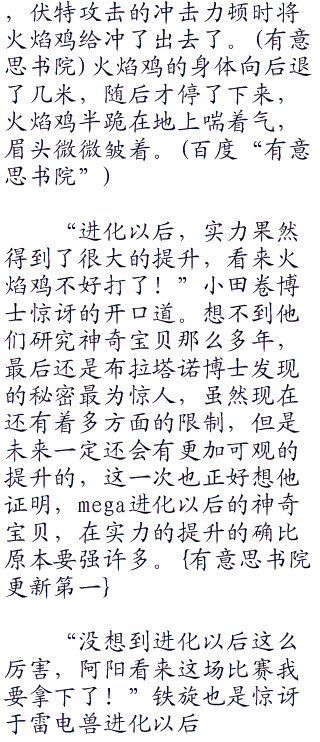 ，伏特攻击的冲击力顿时将
火焰鸡给冲了出去了。(有意
思书院)火焰鸡的身体向后退
了几米，随后才停了下来，
火焰鸡半跪在地上喘着气，
眉头微微皱着。(百度“有意
思书院”)
“进化以后，实力果然
得到了很大的提升，看来火
焰鸡不好打了！”小田卷博
士惊讶的开口道。想不到他
们研究神奇宝贝那么多年，
最后还是布拉塔诺博士发现
的秘密最为惊人，虽然现在
还有着多方面的限制，但是
未来一定还会有更加可观的
提升的，这一次也正好想他
证明，mega进化以后的神奇
宝贝，在实力的提升的确比
原本要强许多。{有意思书院
更新第一}
“没想到进化以后这么
厉害，阿阳看来这场比赛我
要拿下了！”铁旋也是惊讶
于雷电兽进化以后